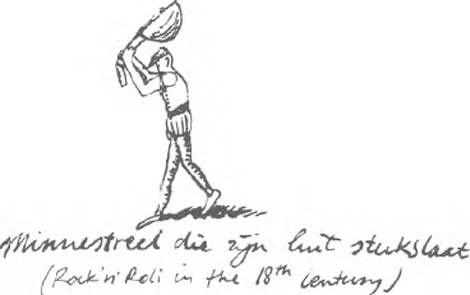 Minnestreel die zijn luit stukslaat
(Rock'n' Roll in the 18th century)